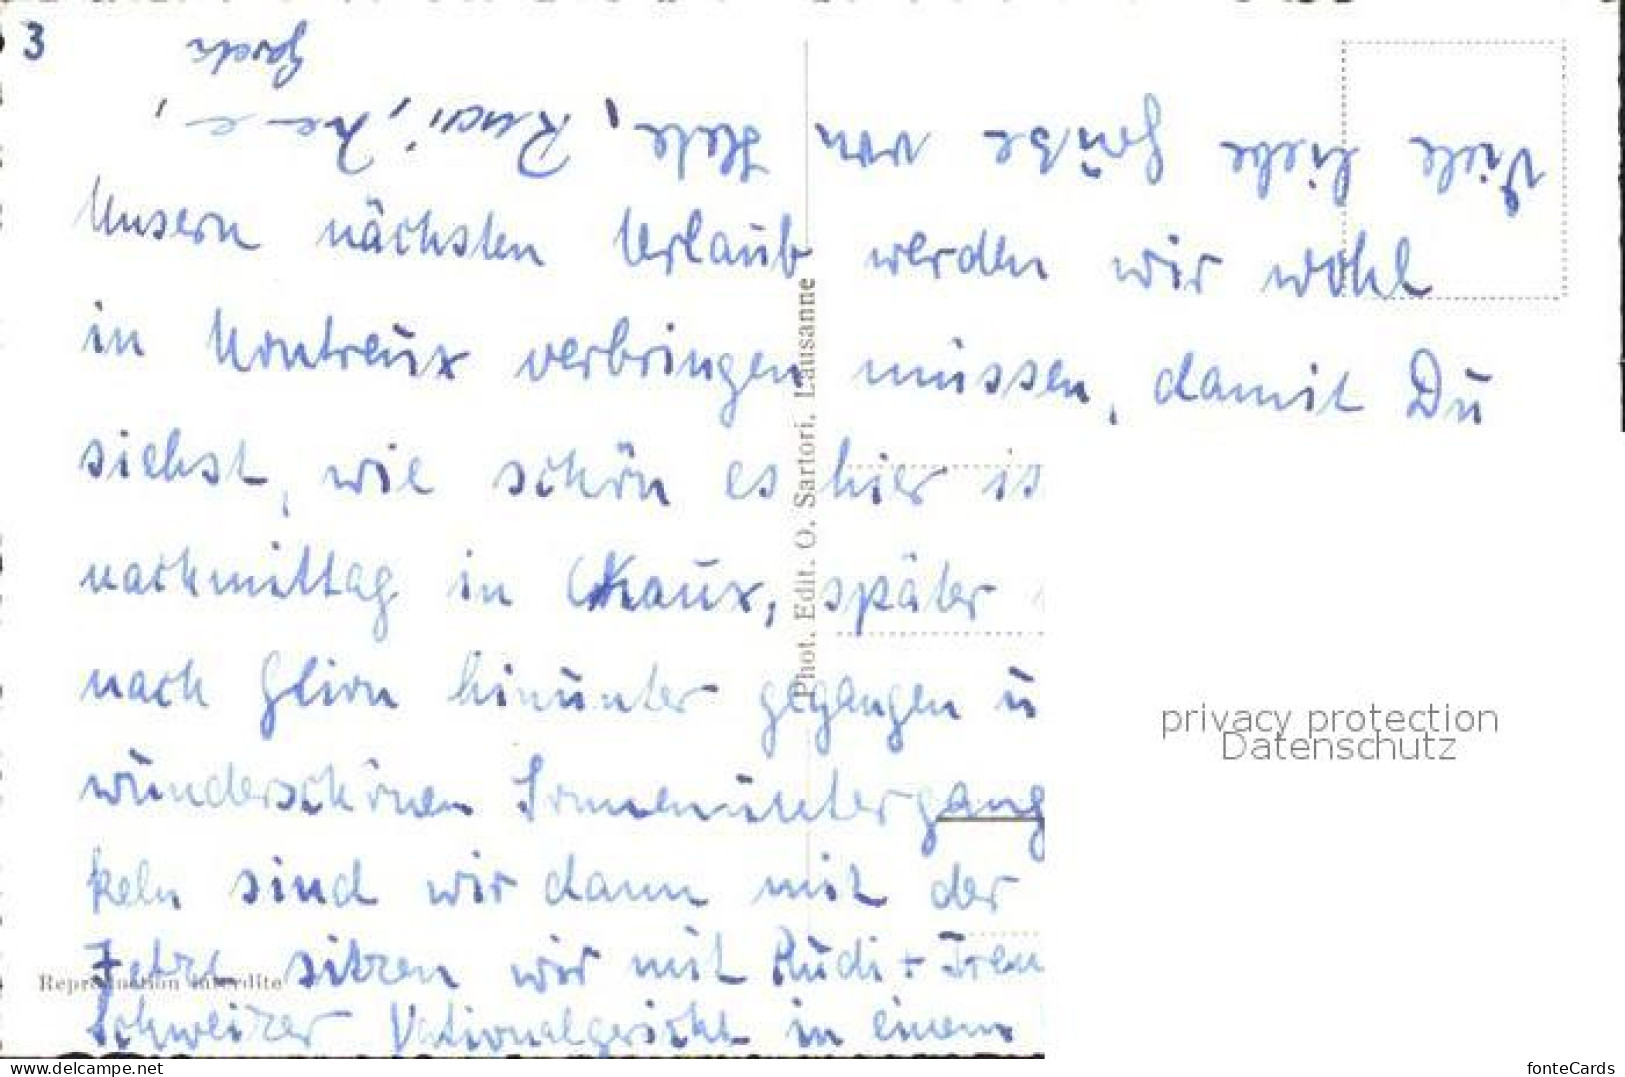 3
Unsern nächsten Urlaub werden wir wohl
in Montreux verbringen müssen, damit Du
siehst, wie schön es hier is
nachmittag in Caux, später
nach Glion hinunter gegangen u
wunderschönen Sonnenuntergang
keln sind wir dann mit der
Jetzt sitzen wir mit Rudi + Iren
Schweizer Nationalgericht in einem
Viele liebe Grüße von Hele, Rudi,
Phot. Edit. O. Sartori, Lausanne
Reproduction interdite
privacy protection
Datenschutz
www.delcampe.net
fonteCards